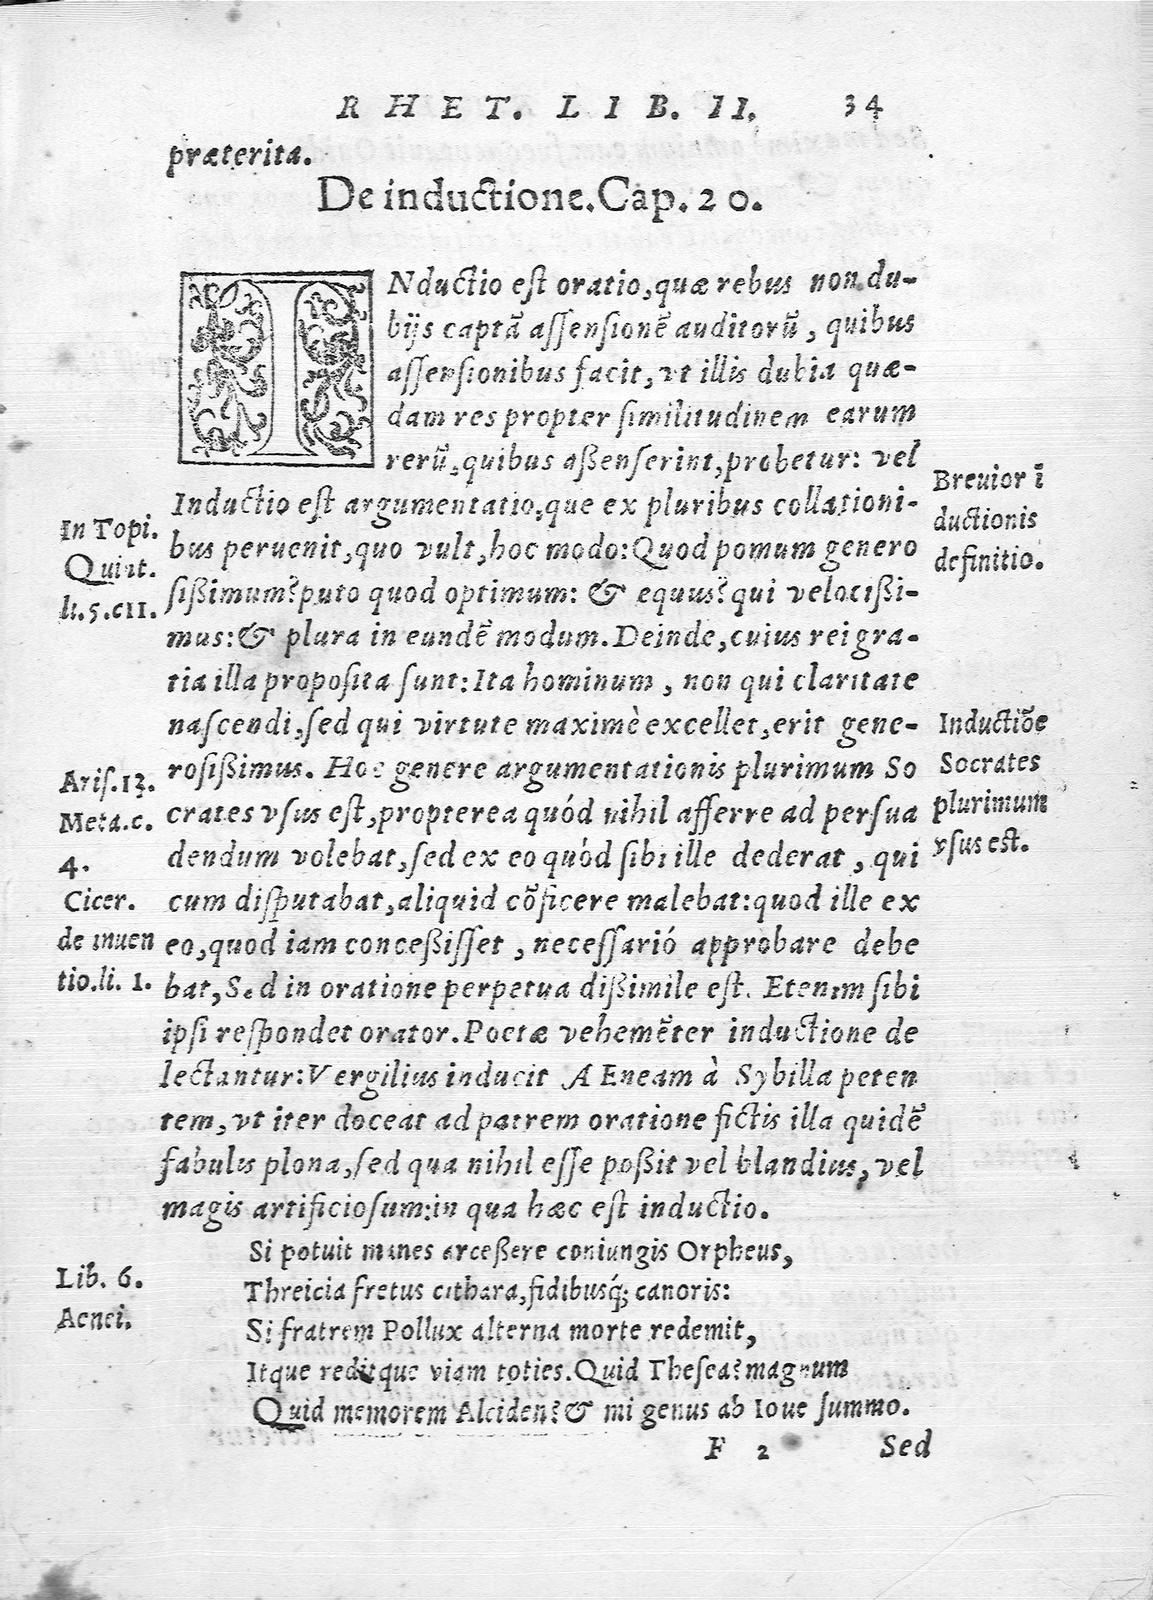 RHET. LIB. II. 34
præterita.
De inductione. Cap. 20.
INductio est oratio, quæ rebus non du-
bijs captã assensionẽ auditorũ, quibus
assensionibus facit, vt illis dubia quæ-
dam res propter similitudinem earum
rerũ, quibus aßenserint, probetur: vel
Inductio est argumentatio, que ex pluribus collationi-
bus peruenit, quo vult, hoc modo: Quod pomum genero
sißimum? puto quod optimum: & equus? qui velocißi-
mus: & plura in eundẽ modum. Deinde, cuius rei gra-
tia illa proposita sunt: Ita hominum, non qui claritate
nascendi, sed qui virtute maximè excellet, erit gene-
rosißimus. Hoc genere argumentationis plurimum So
crates vsus est, propterea quód nihil afferre ad persua
dendum volebat, sed ex eo quód sibi ille dederat, qui
cum disputabat, aliquid cõficere malebat: quod ille ex
eo, quod iam conceßisset, necessarió approbare debe
bat, Sed in oratione perpetua dißimile est. Etenim sibi
ipsi respondet orator. Poetæ vehemẽter inductione de
lectantur: Vergilius inducit AEneam à Sybilla peten
tem, vt iter doceat ad patrem oratione fictis illa quidẽ
fabulis plona, sed qua nihil esse poßit vel blandius, vel
magis artificiosum: in qua hæc est inductio.
Si potuit manes arceßere coniungis Orpheus,
Threicia fretus cithara, fidibusq́; canoris:
Si fratrem Pollux alterna morte redemit,
Itque reditque viam toties. Quid Thesea? magnum
Quid memorem Alciden? & mi genus ab Ioue summo.
F 2 Sed
In Topi.
Quint.
li. 5. c11.
Aris. 13.
Meta. c.
4.
Cicer.
de inuen
tio. li. 1.
Lib. 6.
Aenei.
Breuior ĩ
ductionis
definitio.
Inductiõe
Socrates
plurimum
vsus est.